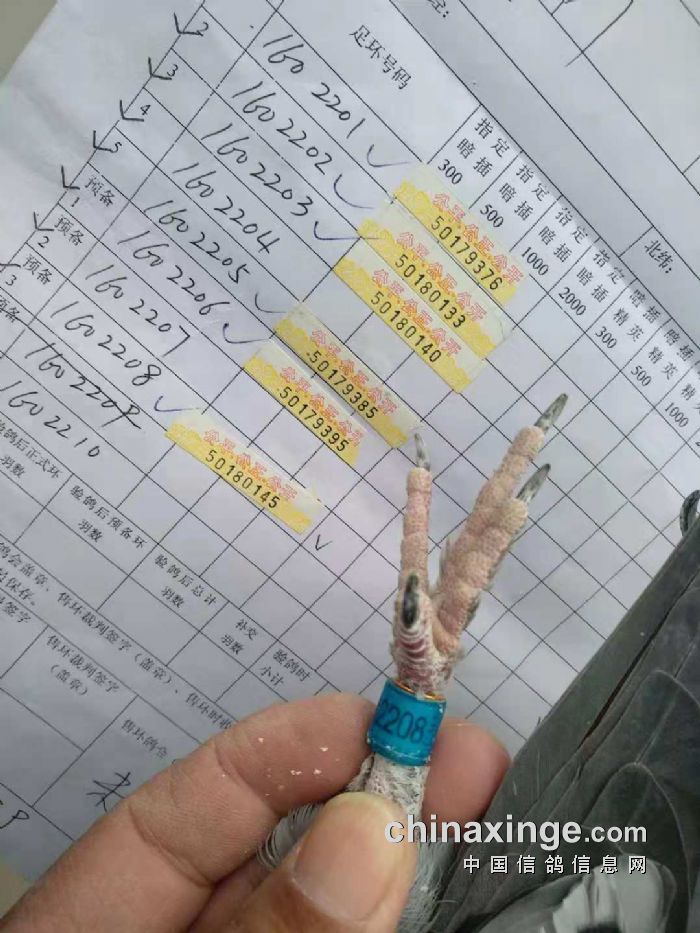 北纬:
足环号码
指定暗插 300
指定暗插 500
指定暗插 1000
指定暗插 2000
暗插精英 300
暗插精英 500
暗插 1000
2 1602201
3 1602202
4 1602203
5 1602204
预备1 1602205
预备2 1602206
预备3 1602207
预备 1602208
1602209
1602210
公正公正公开
50179376
公正公正公开
50180133
公正公正公开
50180140
公正公正公开
50179385
公正公正公开
50179395
公正公正公开
50180145
验鸽后正式环羽数
验鸽后预备环羽数
验鸽后总计羽数
补交羽数
验鸽时小计
鸽会盖章、售环裁判签字(盖章)、售环时收
保存。
签字
售环裁判签字(盖章)
售环鸽会
2208
chinaxinge.com
中国信鸽信息网